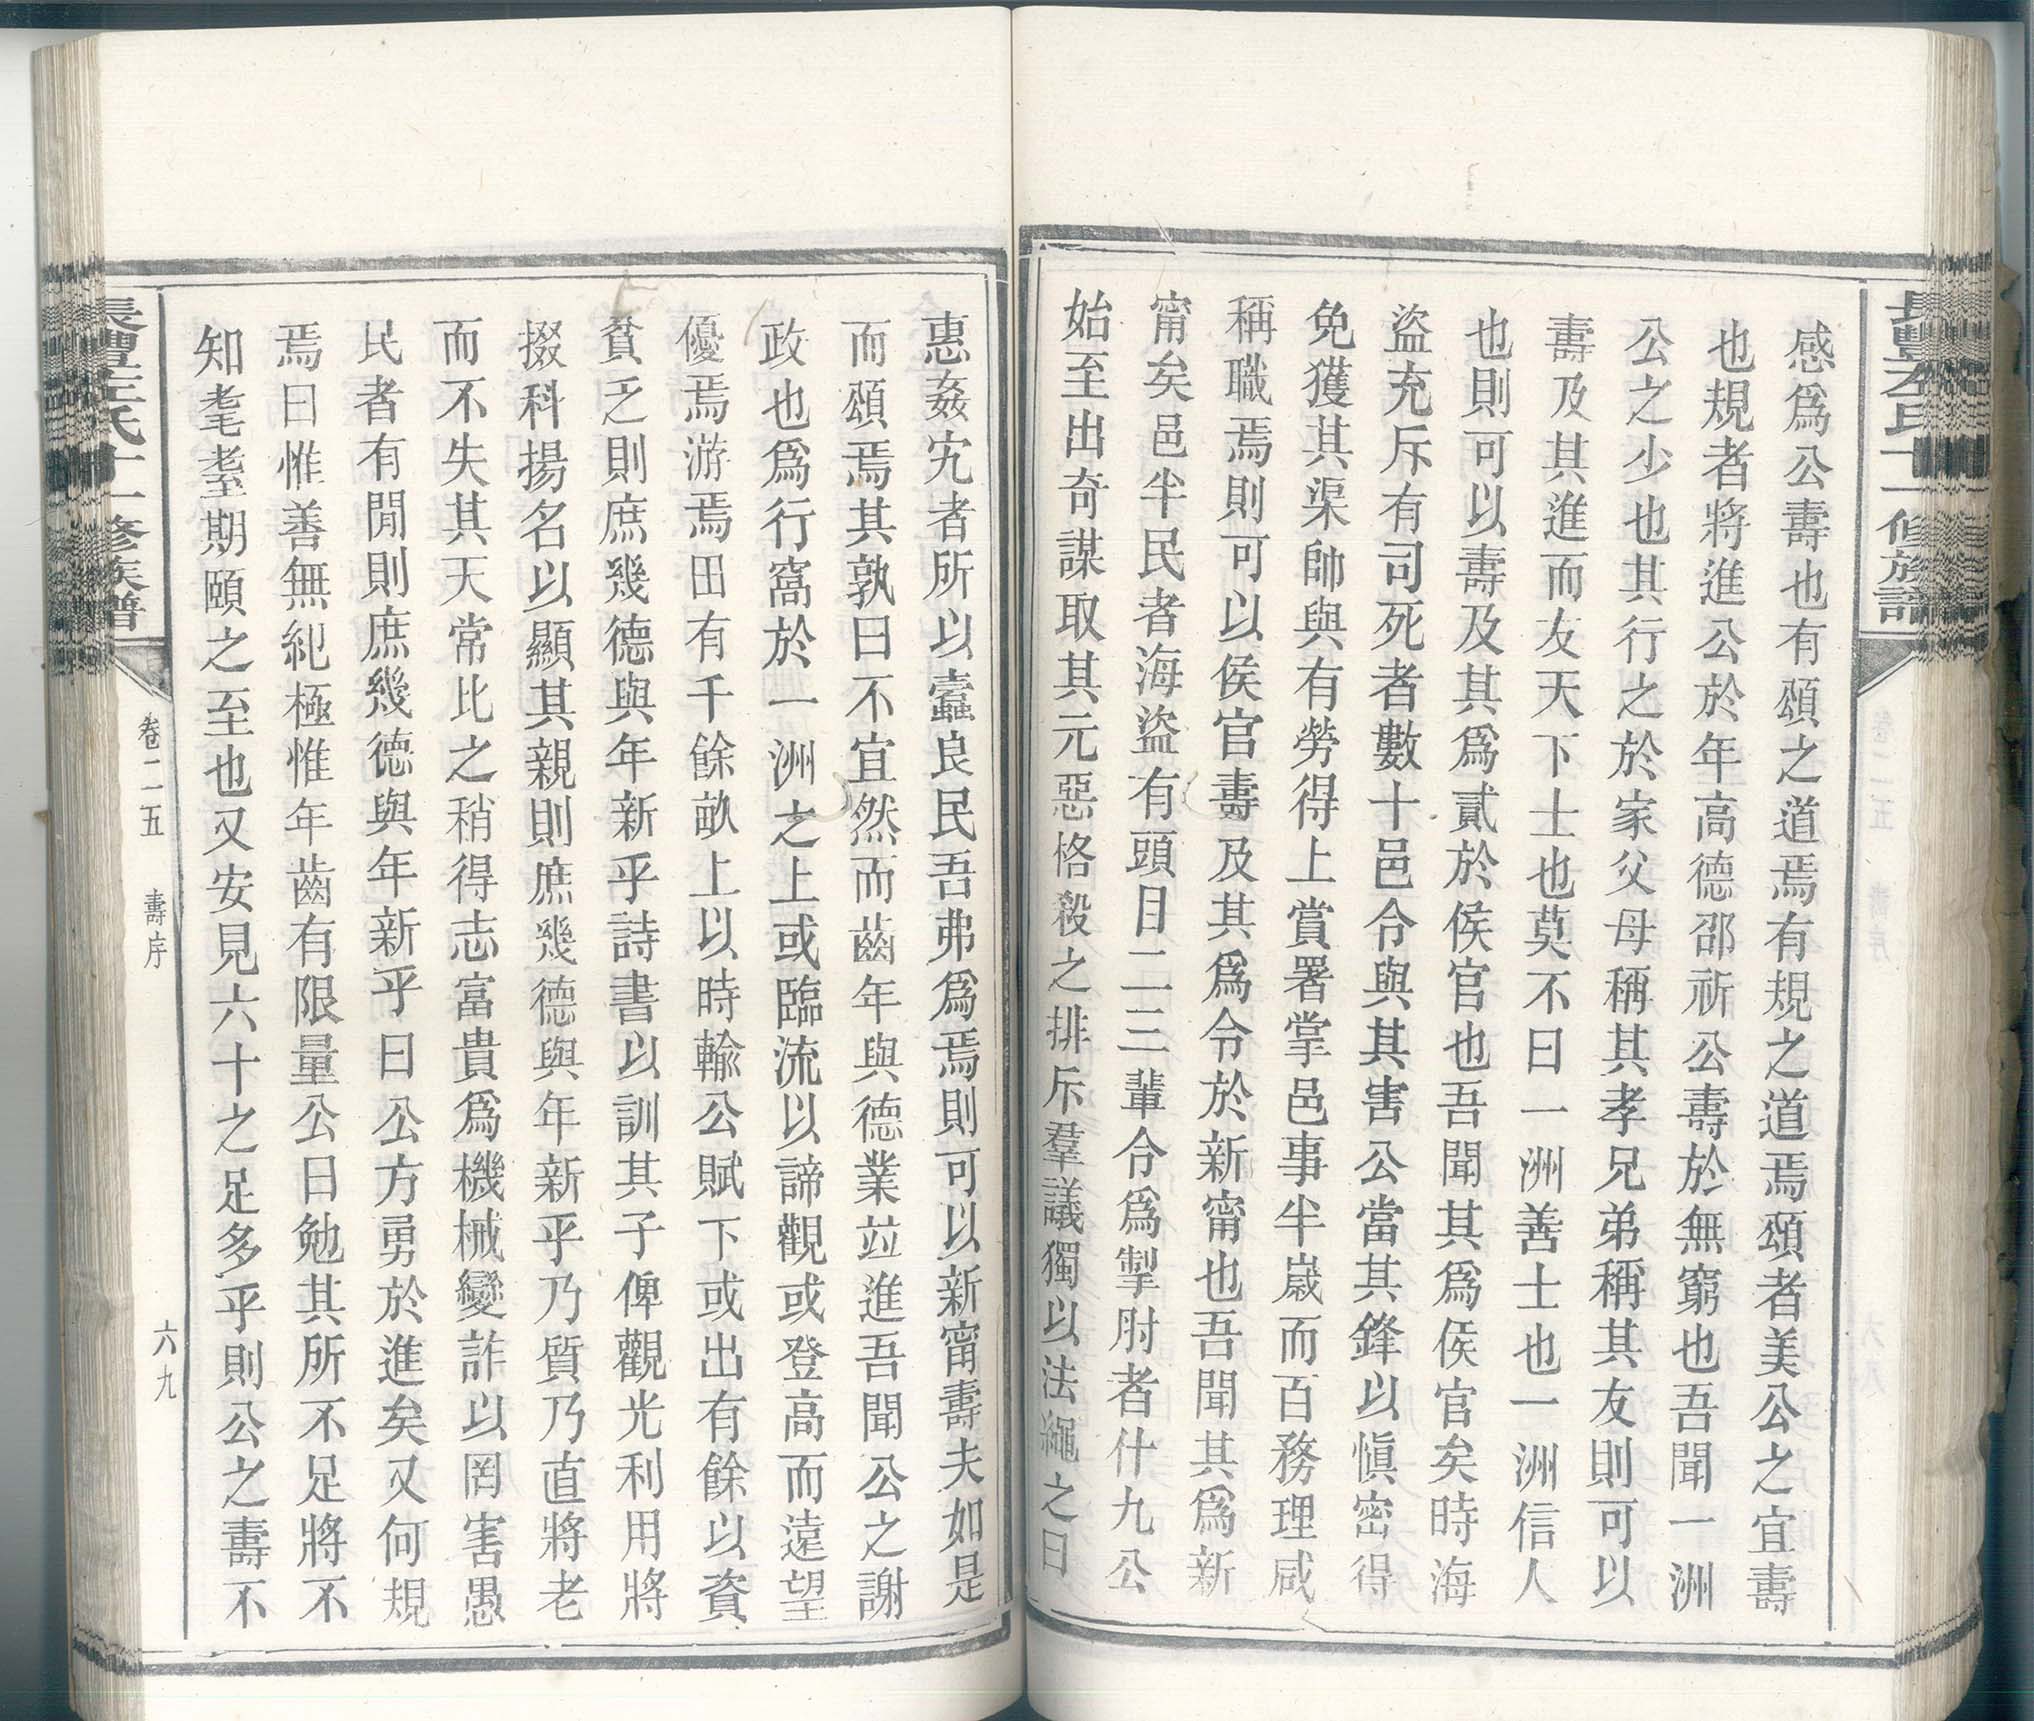 長豐左氏十一修族譜
感爲公壽也有頌之道焉有規之道焉頌者美公之宜壽
也規者將進公於年高德邵祈公壽於無窮也吾聞一洲
公之少也其行之於家父母稱其孝兄弟稱其友則可以
壽及其進而友天下士也莫不曰一洲善士也一洲信人
也則可以壽及其爲貳於侯官也吾聞其爲侯官矣時海
盜充斥有司死者數十邑令與其害公當其鋒以愼密得
免獲其渠帥與有勞得上賞署掌邑事半嵗而百務理咸
稱職焉則可以侯官壽及其爲令於新甯也吾聞其爲新
甯矣邑半民者海盜有頭目二三輩令爲掣肘者什九公
始至出奇謀取其元惡格殺之排斥羣議獨以法繩之曰
惠姦宄者所以蠹良民吾弗爲焉則可以新甯壽夫如是
而頌焉其孰曰不宜然而齒年與德業竝進吾聞公之謝
政也爲行窩於一洲之上或臨流以諦觀或登高而遠望
優焉游焉田有千餘畝上以時輸公賦下或出有餘以資
貧乏則庶幾德與年新乎詩書以訓其子俾觀光利用將
掇科揚名以顯其親則庶幾德與年新乎乃質乃直將老
而不失其天常比之稍得志富貴爲機械變詐以罔害愚
民者有閒則庶幾德與年新乎曰公方勇於進矣又何規
焉曰惟善無紀極惟年齒有限量公日勉其所不足將不
知耄耋期頤之至也又安見六十之足多乎則公之壽不
長豐左氏十一修族譜
卷二五 壽序
六九